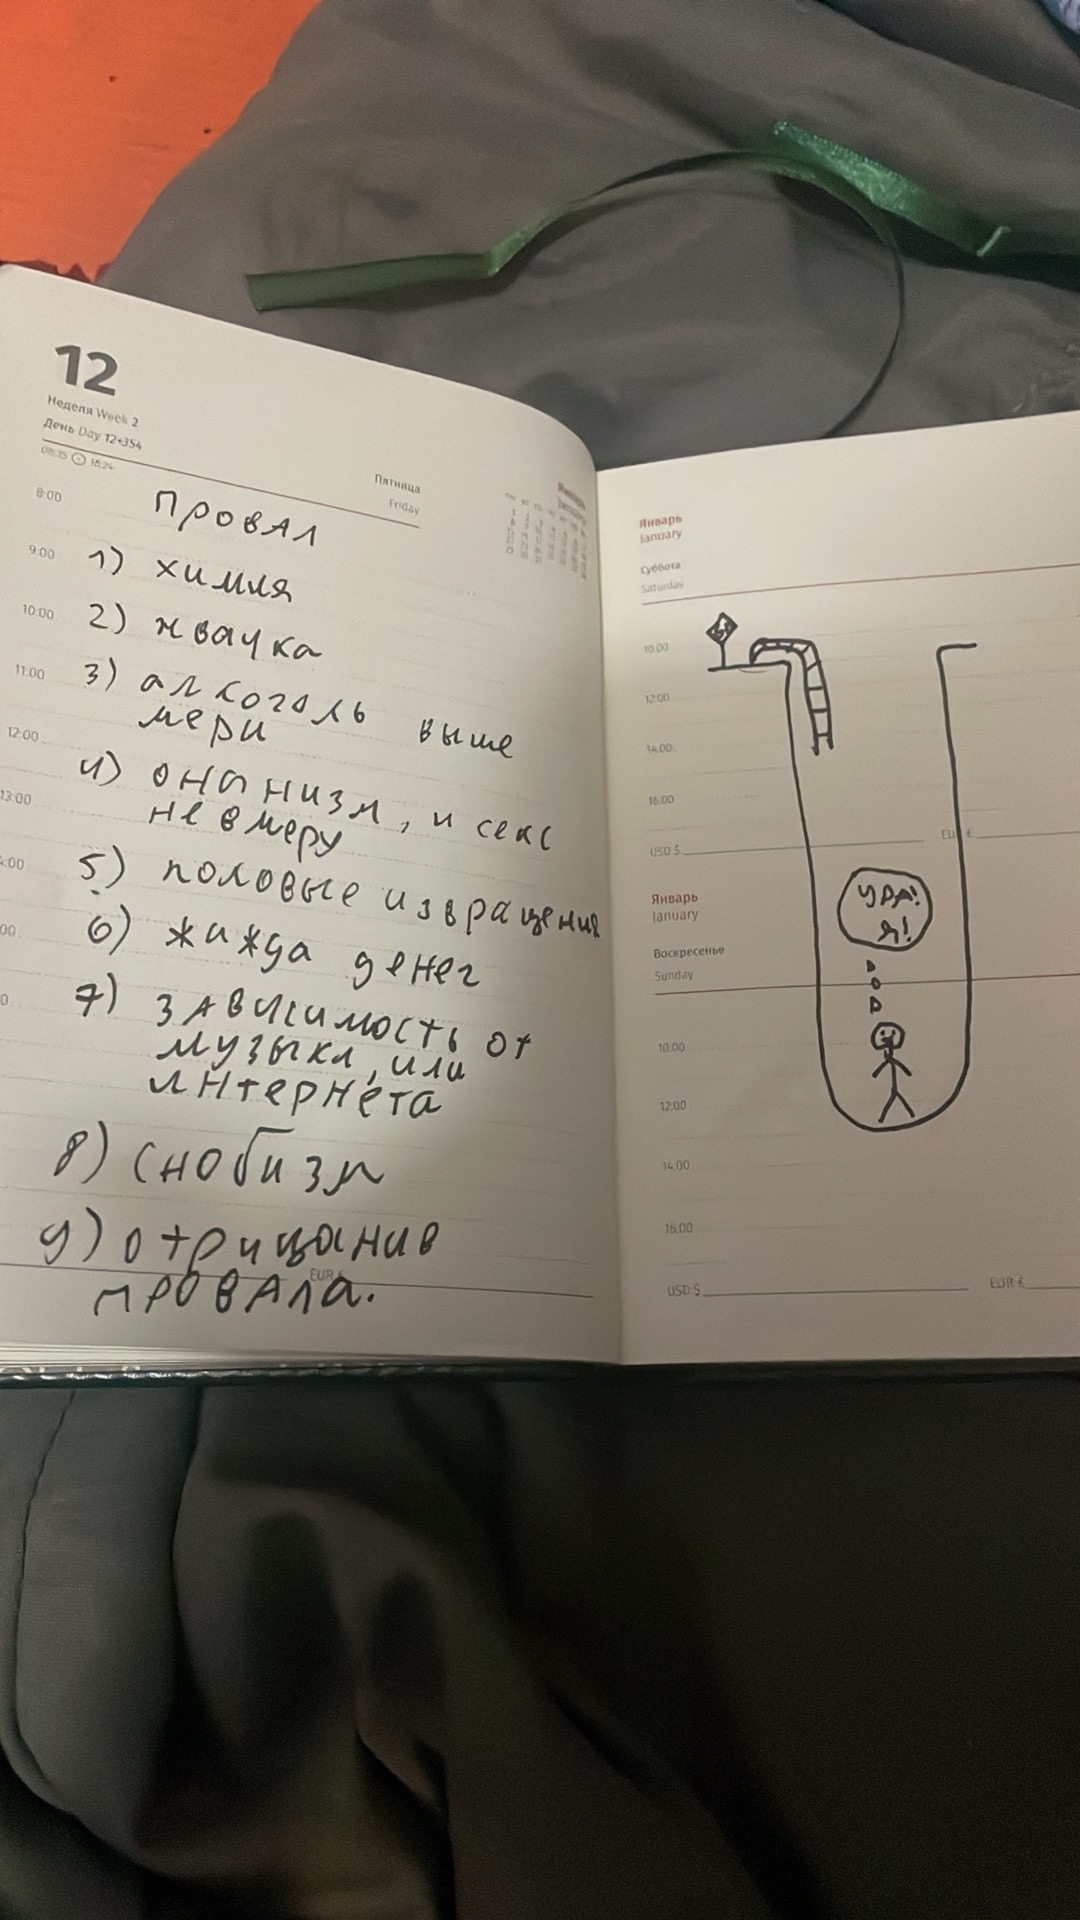 12
Неделя Week 2
День Day 12+354
Пятница
Friday
Январь
8:00
ПРОВАЛ
9:00
1) химия
10:00
2) жвачка
11:00
3) алкоголь выше
мери
12:00
4) онанизм, и секс
13:00
не в меру
5) половые извращения
6) жижда денег
7) зависимость от
музыки, или
интернета
8) снобизм
9) отрицание
EUR €
провала.
Январь
January
Суббота
Saturday
10:00
12:00
14:00
16:00
USD $
EUR €
УРА!
Я!
Январь
January
Воскресенье
Sunday
10:00
12:00
14:00
16:00
USD $
EUR €